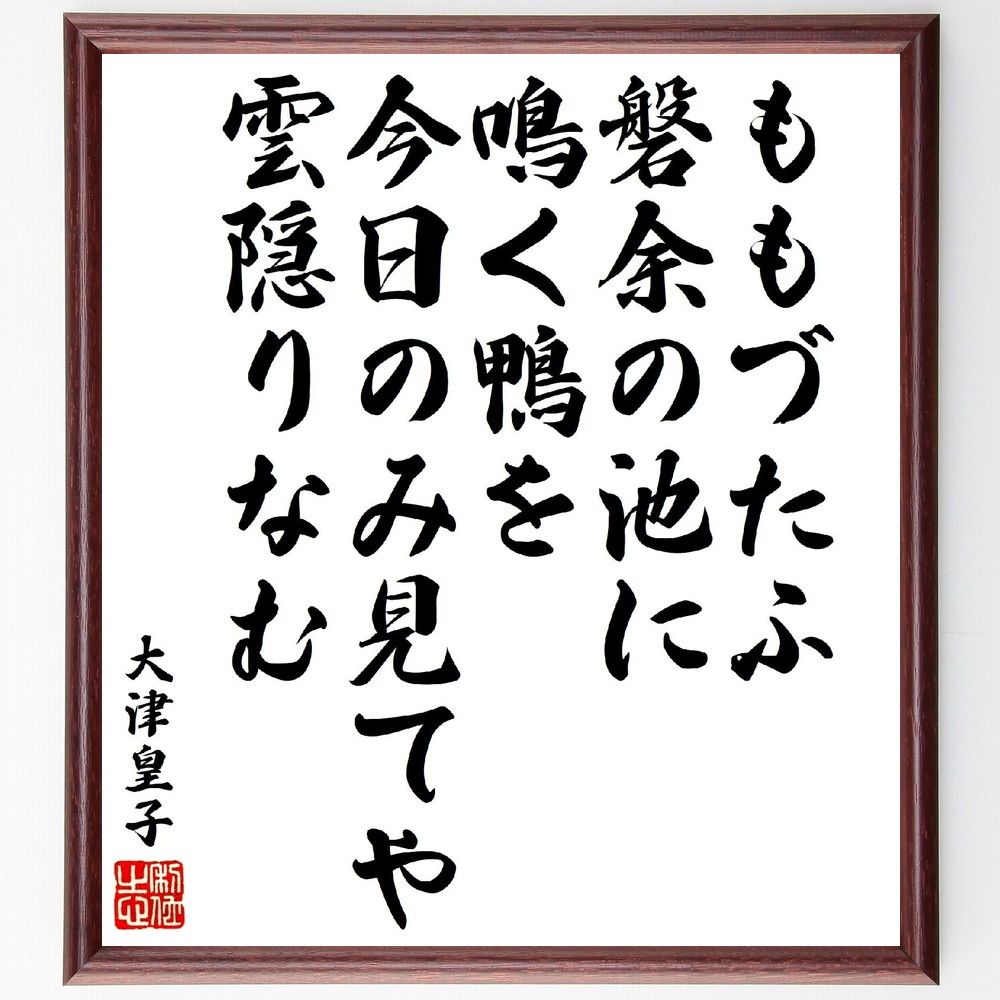 ももづたふ
磐余の池に
鳴く鴨を
今日のみ見てや
雲隠りなむ
大津皇子